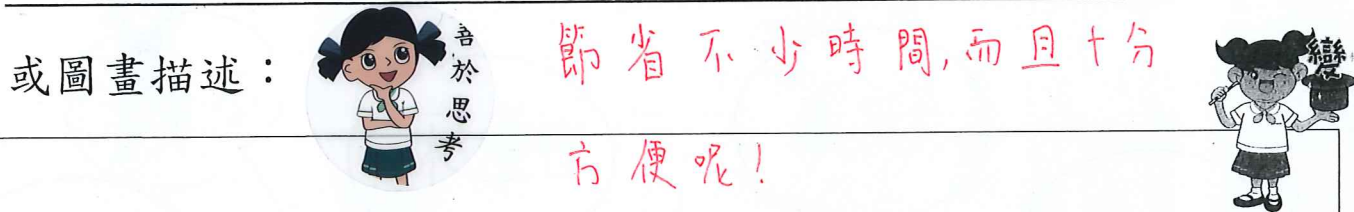 或圖畫描述：
吾於思考
節省不少時間,而且十分
方便呢!
變